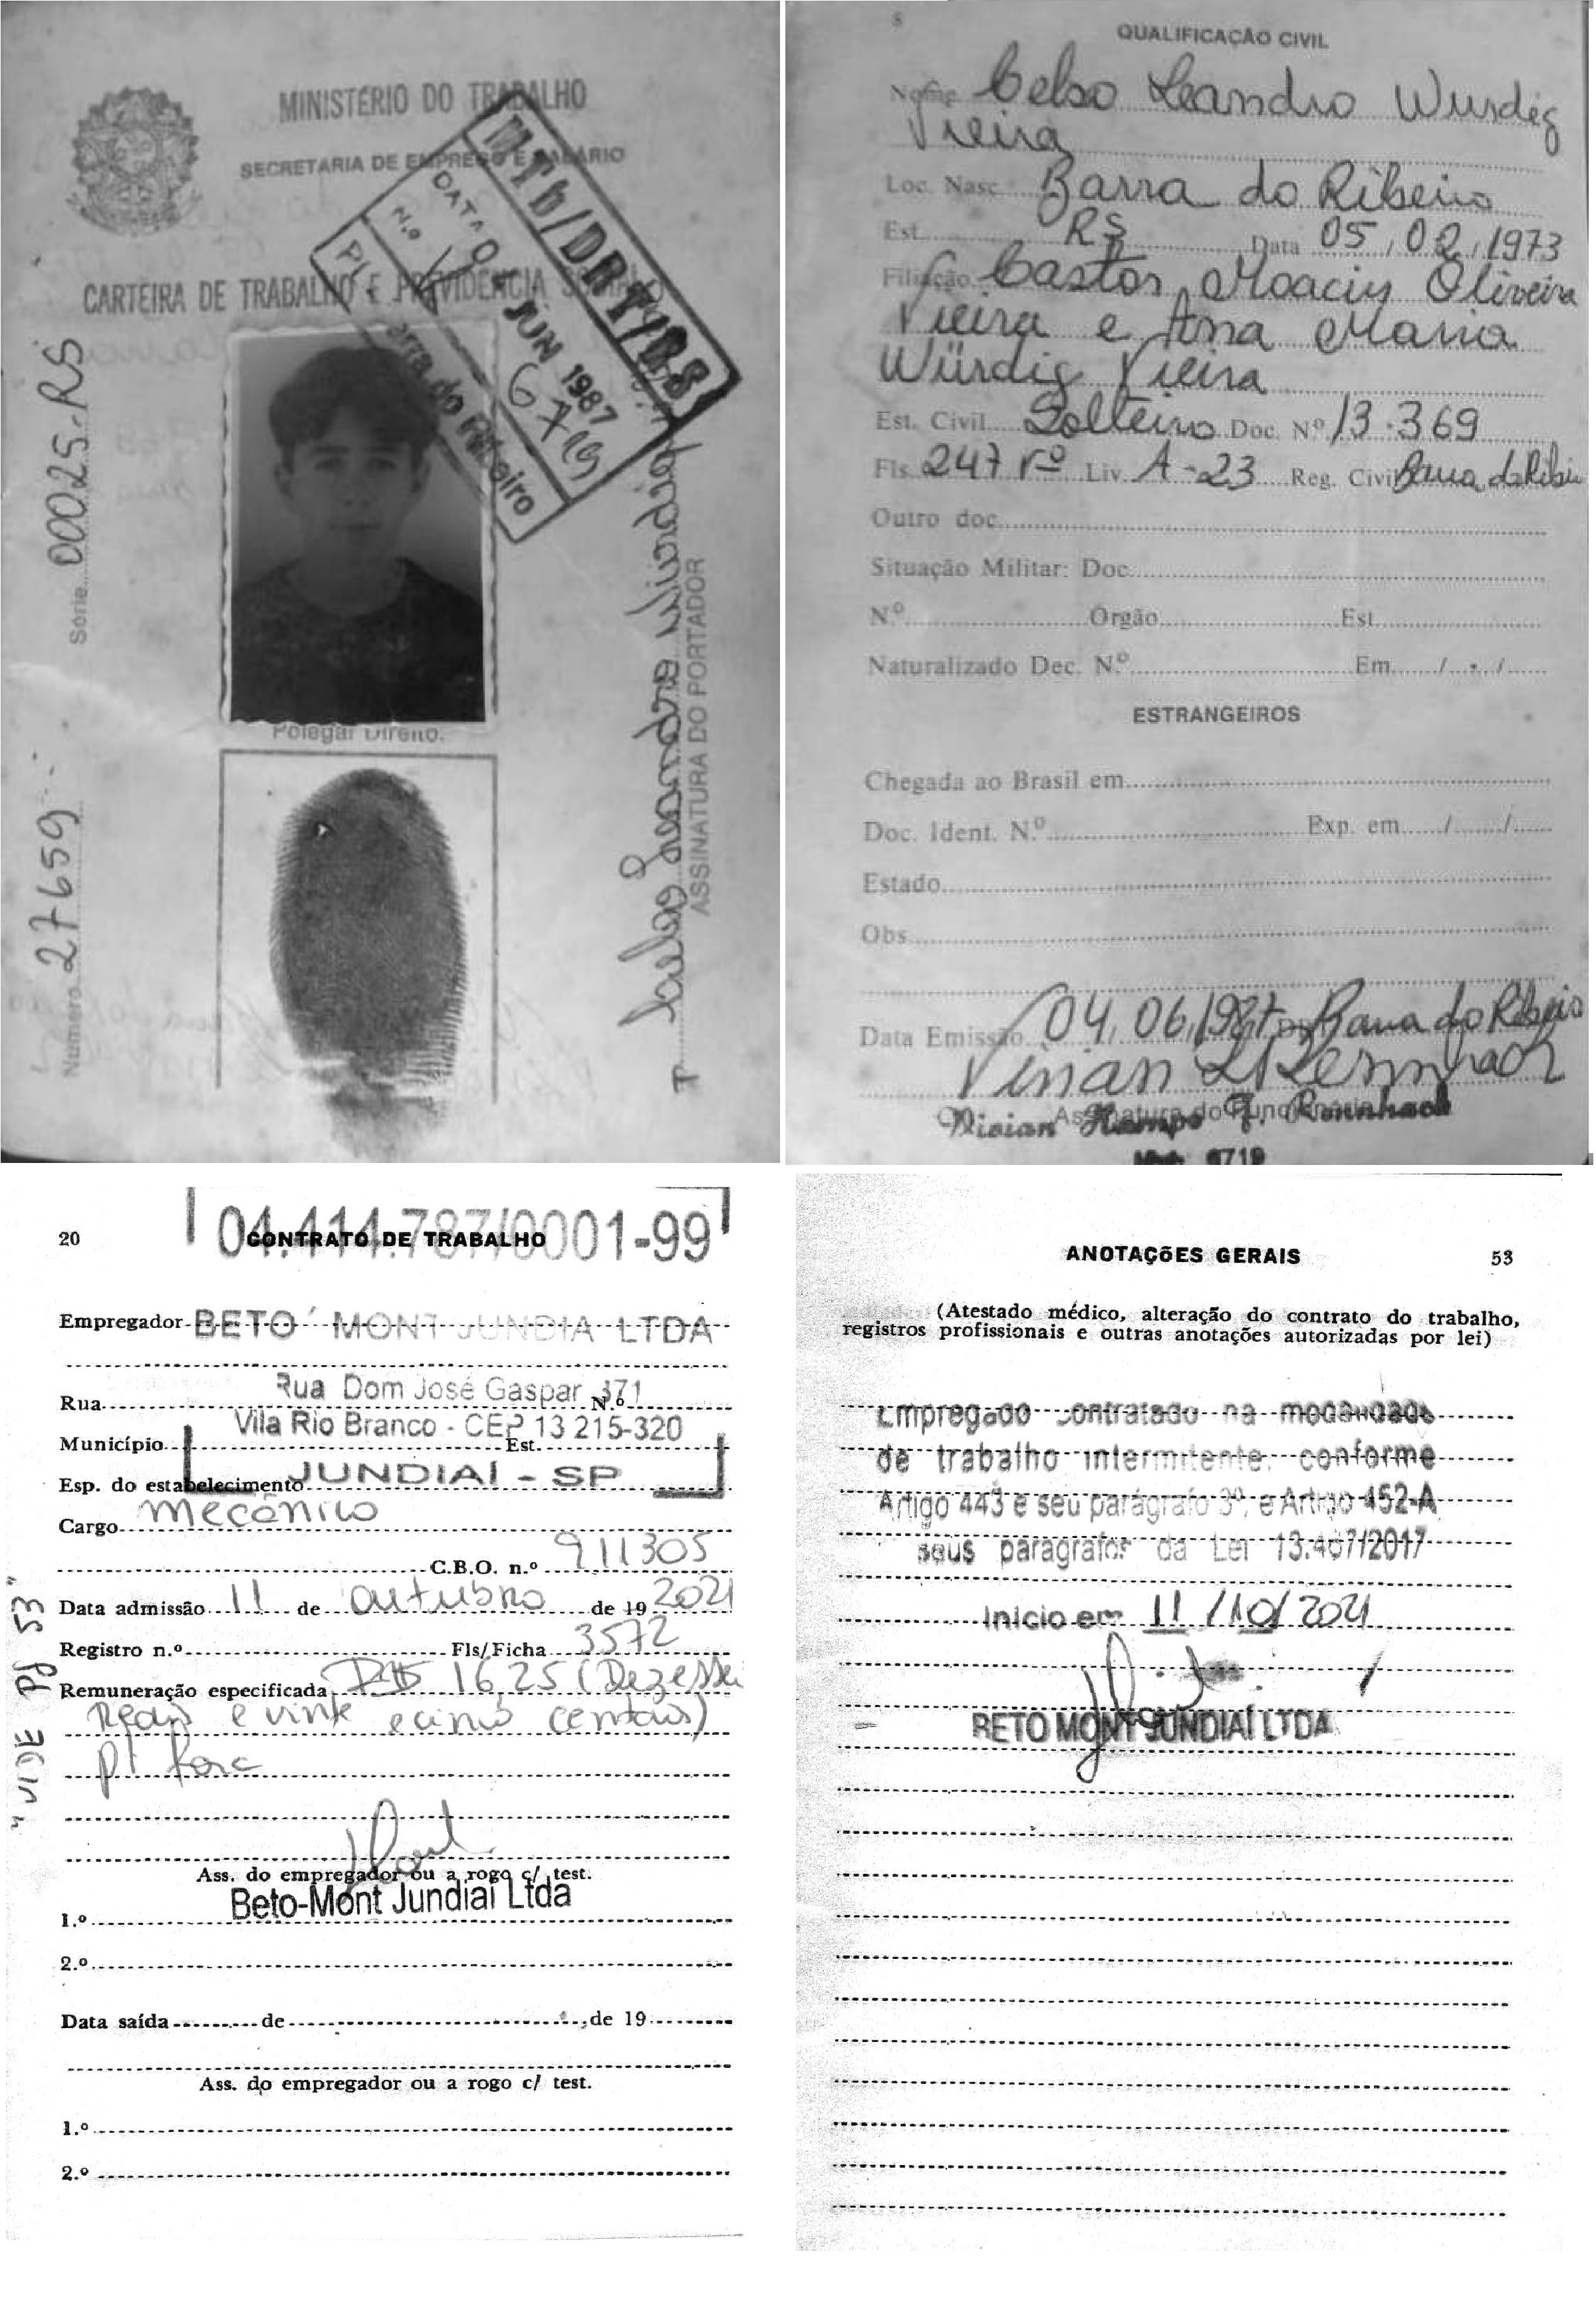 MINISTÉRIO DO TRABALHO
SECRETARIA DE EMPREGO E SALÁRIO
CARTEIRA DE TRABALHO E PREVIDÊNCIA
MTb/DRT/RS
DATA 04 JUN 1987
N.º 6719
Barra do Ribeiro
Série 00025-RS
Número 27659
Polegar Direito.
Celso Leandro Wurdig
ASSINATURA DO PORTADOR
8
QUALIFICAÇÃO CIVIL
Nome Celso Leandro Wurdig
Vieira
Loc. Nasc. Barra do Ribeiro
Est. RS Data 05/02/1973
Filiação Castor Moacir Oliveira
Vieira e Ana Maria
Würdig Vieira
Est. Civil Solteiro Doc. Nº 13.369
Fls. 247 Vº Liv. A-23 Reg. Civil Barra do Ribei
Outro doc.
Situação Militar: Doc.
N.º Órgão Est.
Naturalizado Dec. N.º Em / /
ESTRANGEIROS
Chegada ao Brasil em
Doc. Ident. N.º Exp. em / /
Estado
Obs.
Data Emissão 04/06/1987 Barra do Ribeiro
Assinatura do Funcionário
Vivian
6719
20
04.414.787/0001-99
CONTRATO DE TRABALHO
Empregador BETO MONT JUNDIA LTDA
Rua Rua Dom José Gaspar N.º 371
Vila Rio Branco - CEP 13 215-320
Município Est.
Esp. do estabelecimento JUNDIAÍ - SP
Cargo Mecânico
C.B.O. n.º 911305
Data admissão 11 de outubro de 19 2021
Registro n.º Fls/Ficha 3572
Remuneração especificada R$ 16,25 (Dezessei
Reais e vinte e cinco centavos)
p/ hora
"VIDE PG 53"
Ass. do empregador ou a rogo c/ test.
Beto-Mont Jundiaí Ltda
1.º
2.º
Data saída de de 19
Ass. do empregador ou a rogo c/ test.
1.º
2.º
ANOTAÇÕES GERAIS 53
(Atestado médico, alteração do contrato do trabalho,
registros profissionais e outras anotações autorizadas por lei)
Empregado contratado na modalidade
de trabalho intermitente, conforme
Artigo 443 e seu parágrafo 3º, e Artigo 452-A
seus parágrafos da Lei 13.467/2017
Início em 11/10/2021
BETO MONT JUNDIAÍ LTDA